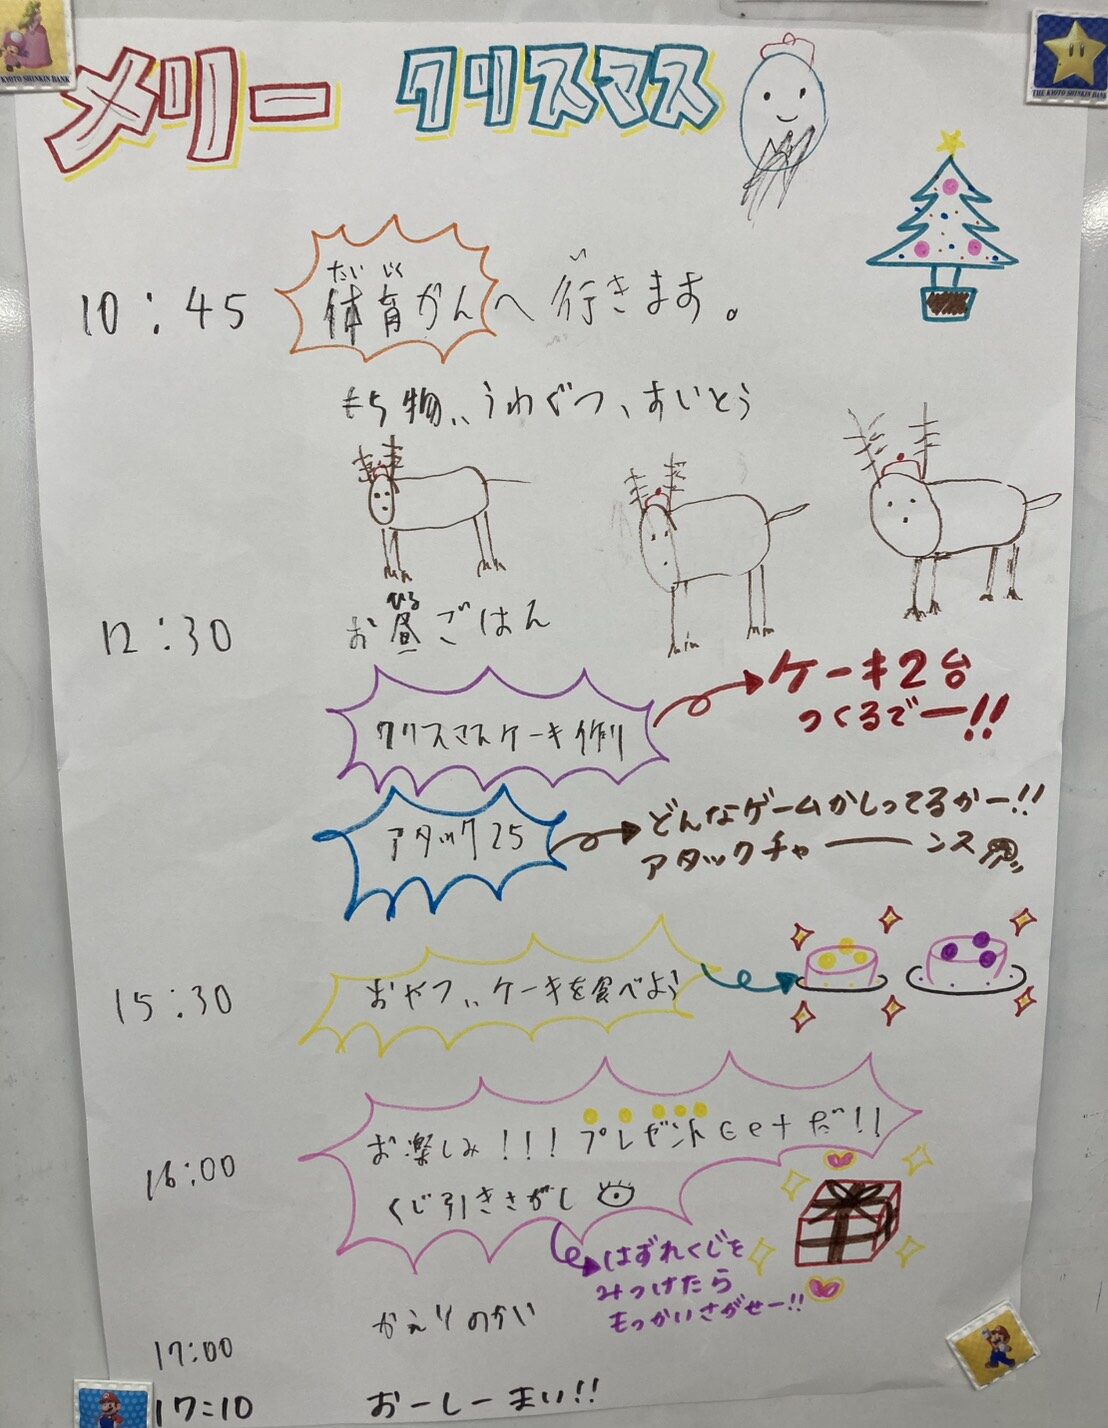 KYOTO SHINKIN BANK
THE KYOTO SHINKIN BANK
メリー クリスマス
10:45 体育かんへ行きます。
たいいく い
もち物、、うわぐつ、すいとう
ひる
12:30 お昼ごはん
クリスマスケーキ作り
ケーキ2台
つくるでー!!
アタック25
どんなゲームかしってるかー!!
アタックチャーーンス
15:30 おやつ、、ケーキを食べよう
16:00 お楽しみ!!!プレゼントGetだ!!
くじ引きさがし
はずれくじを
みつけたら
もっかいさがせー!!
17:00 かえりのかい
17:10 おーしーまい!!